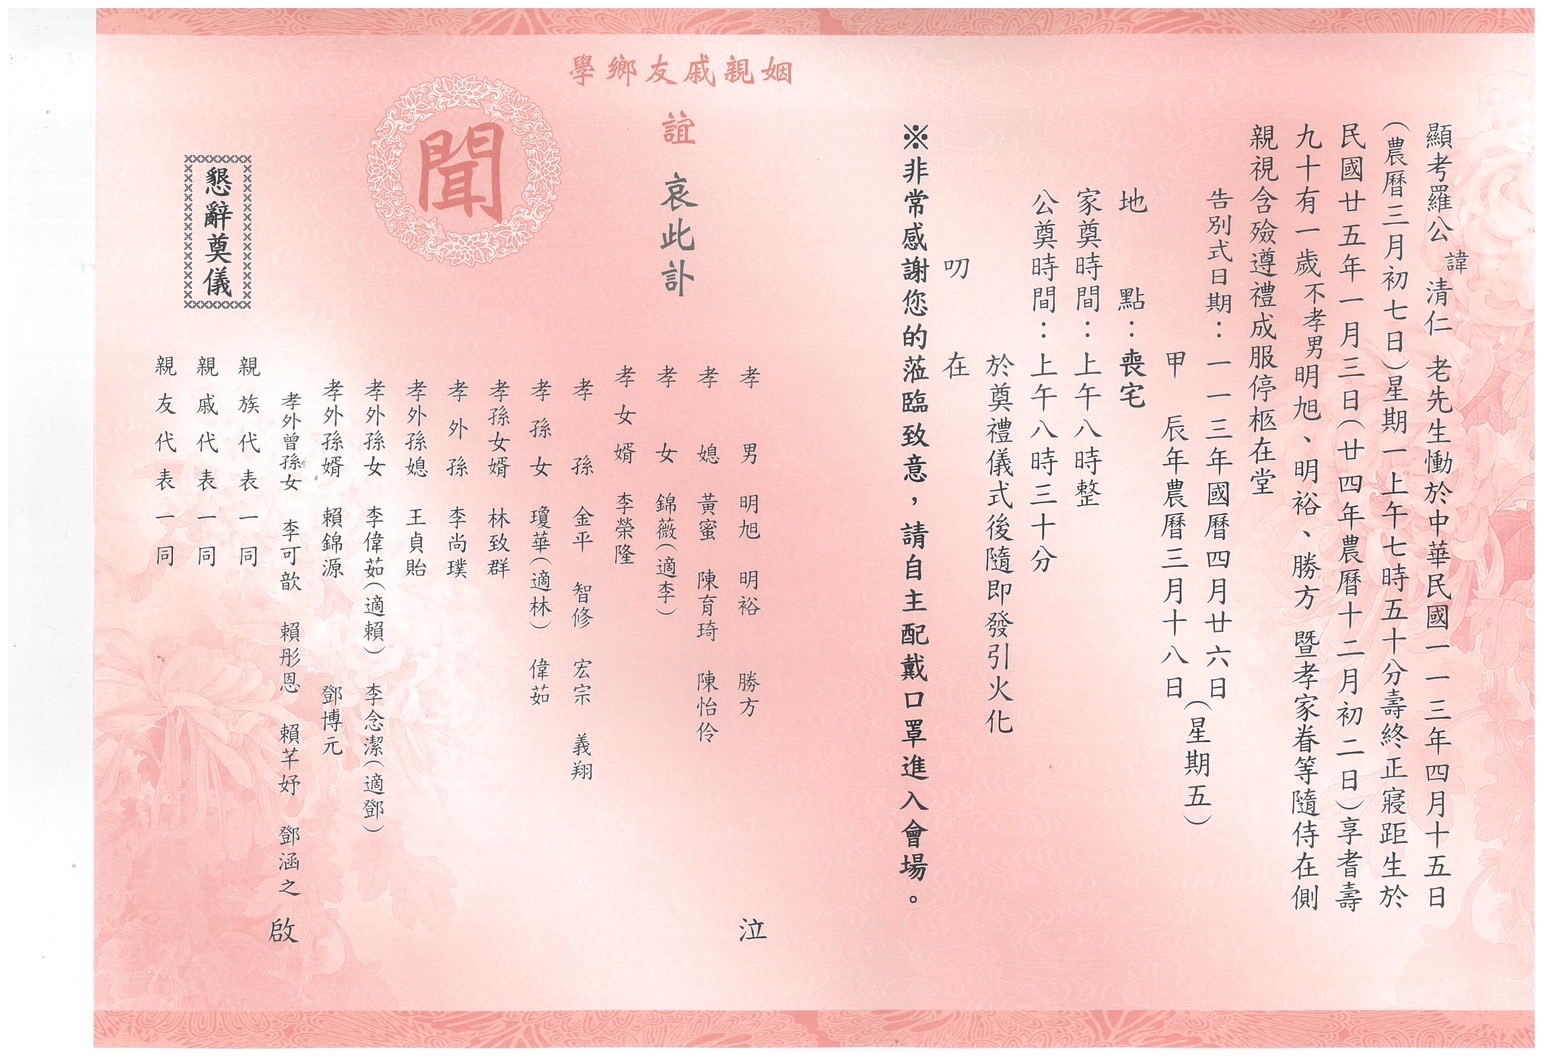 顯考羅公諱清仁 老先生慟於中華民國一一三年四月十五日
(農曆三月初七日)星期一上午七時五十分壽終正寢距生於
民國廿五年一月三日(廿四年農曆十二月初二日)享耆壽
九十有一歲不孝男明旭、明裕、勝方 暨孝家眷等隨侍在側
親視含殮遵禮成服停柩在堂
告別式日期：一一三年國曆四月廿六日
甲 辰年農曆三月十八日
(星期五)
地 點：喪宅
家奠時間：上午八時整
公奠時間：上午八時三十分
於奠禮儀式後隨即發引火化
叨 在
※非常感謝您的蒞臨致意，請自主配戴口罩進入會場。
姻親戚友鄉學
誼 哀此訃
聞
孝 男 明旭 明裕 勝方 泣
孝 媳 黃蜜 陳育琦 陳怡伶
孝 女 錦薇(適李)
孝女婿 李榮隆
孝 孫 金平 智修 宏宗 義翔
孝孫女 瓊華(適林) 偉茹
孝孫女婿 林致群
孝外孫 李尚璞
孝外孫媳 王貞貽
孝外孫女 李偉茹(適賴) 李念潔(適鄧)
孝外孫婿 賴錦源 鄧博元
孝外曾孫女 李可歆 賴彤恩 賴芊妤 鄧涵之 啟
親族代表一同
親戚代表一同
親友代表一同
懇辭奠儀